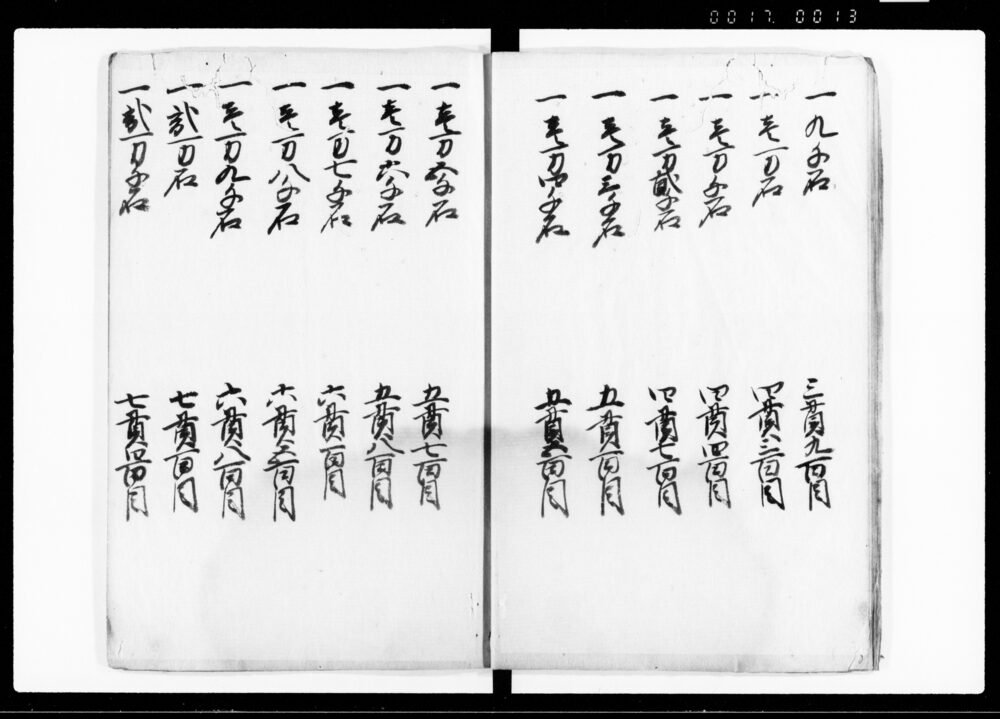 0017. 0013
一九千石　三貫九百目
一壱万石　四貫三百目
一壱万千石　四貫四百目
一壱万弐千石　四貫七百目
一壱万三千石　五貫百目
一壱万四千石　五貫　百目
一壱万五千石　五貫七百目
一壱万六千石　五貫八百目
一壱万七千石　六貫百目
一壱万八千石　六貫　百目
一壱万九千石　六貫八百目
一弐万石　七貫百目
一弐万千石　七貫四百目